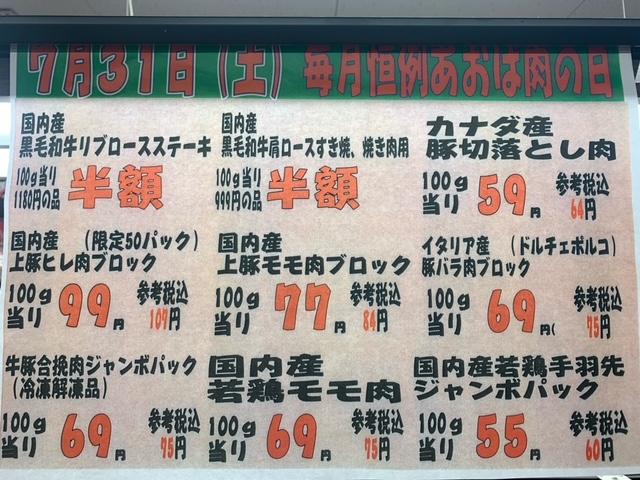 7月31日(土) 毎月恒例あおば肉の日
国内産
黒毛和牛リブロースステーキ
100g当り
1180円の品
半額
国内産
黒毛和牛肩ロースすき焼、焼き肉用
100g当り
999円の品
半額
カナダ産
豚切落とし肉
100g
当り
59円
参考税込
64円
国内産 (限定50パック)
上豚ヒレ肉ブロック
100g
当り
99円
参考税込
107円
国内産
上豚モモ肉ブロック
100g
当り
77円
参考税込
84円
イタリア産 (ドルチェポルコ)
豚バラ肉ブロック
100g
当り
69円(
参考税込
75円
牛豚合挽肉ジャンボパック
(冷凍解凍品)
100g
当り
69円
参考税込
75円
国内産
若鶏モモ肉
100g
当り
69円
参考税込
75円
国内産若鶏手羽先
ジャンボパック
100g
当り
55円
参考税込
60円